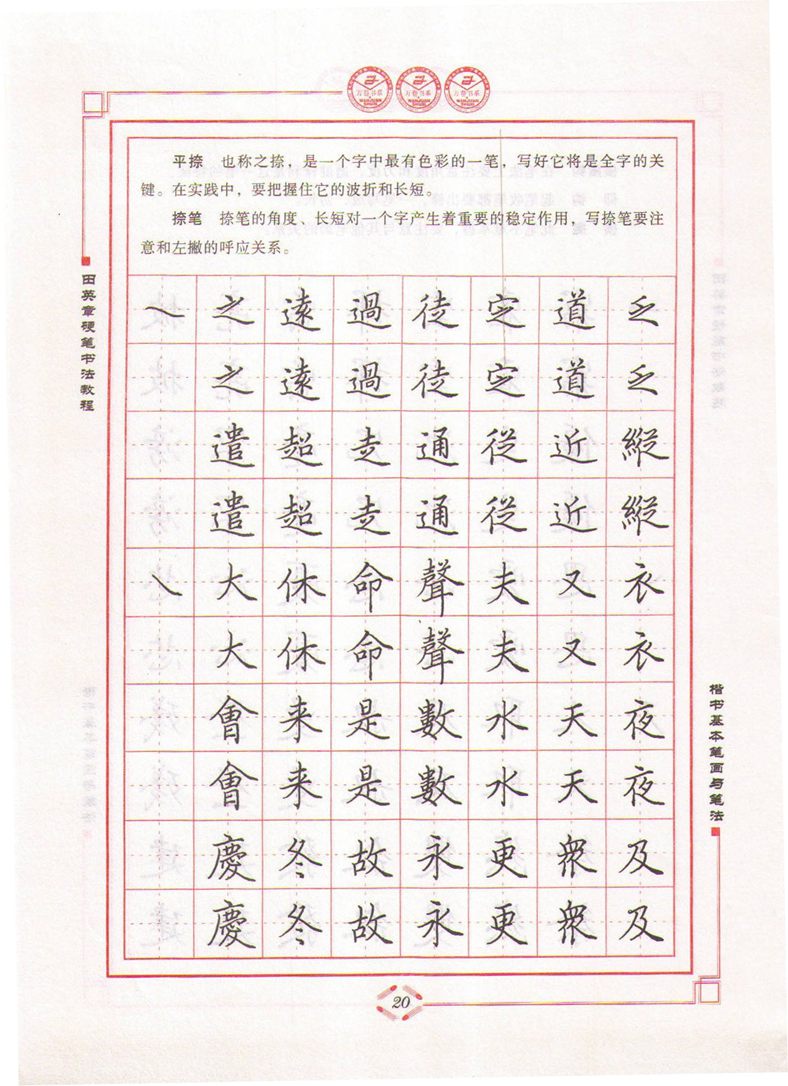 万卷书系 万卷书系 万卷书系
平捺 也称之捺，是一个字中最有色彩的一笔，写好它将是全字的关
键。在实践中，要把握住它的波折和长短。
捺笔 捺笔的角度、长短对一个字产生着重要的稳定作用，写捺笔要注
意和左撇的呼应关系。
田英章硬笔书法教程
㇏ 之 遠 過 徒 定 道 乏
之 遠 過 徒 定 道 乏
遣 超 走 通 從 近 縱
遣 超 走 通 從 近 縱
㇏ 大 休 命 聲 夫 又 衣
大 休 命 聲 夫 又 衣
會 来 是 數 水 天 夜
會 来 是 數 水 天 夜
慶 冬 故 永 更 衆 及
慶 冬 故 永 更 衆 及
楷书基本笔画与笔法
20